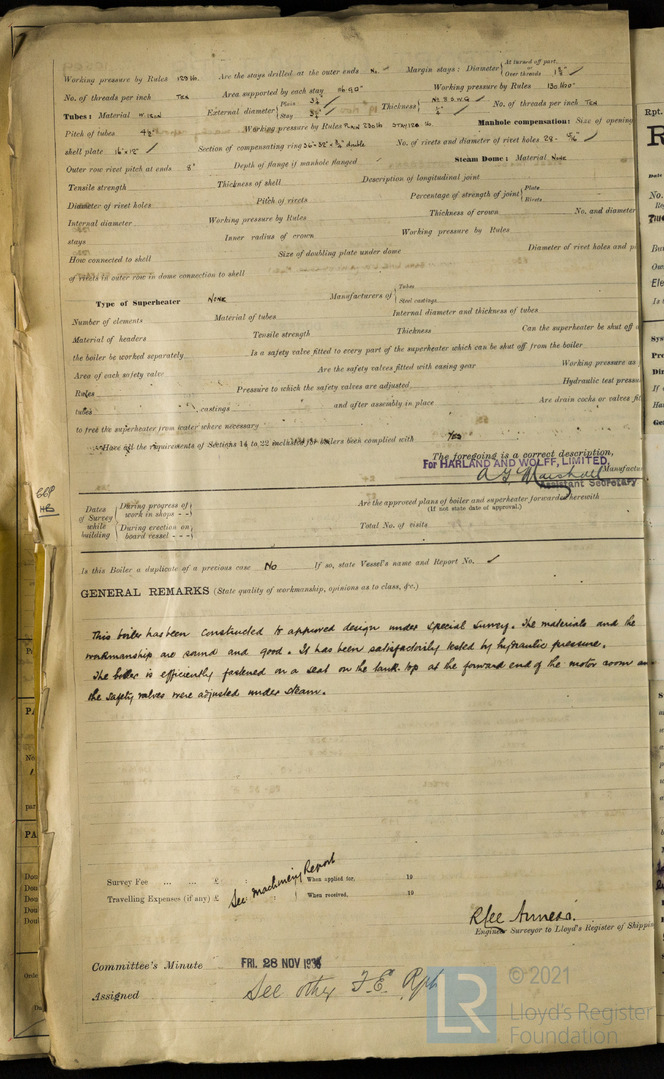 Working pressure by Rules 129 lb. Are the stays drilled at the outer ends No. Margin stays: Diameter { At turned off part, Over threads 1⅞" ✓
No. of threads per inch TEN Area supported by each stay 96.90" Working pressure by Rules 130 lb
Tubes: Material W. IRON External diameter { Plain 3¼ Stay 3¼" Thickness { No 8 S.W.G ✓ No. of threads per inch TEN
Pitch of tubes 4⅝" Working pressure by Rules PLAIN 230 lb STAY 120 lb Manhole compensation: Size of opening
shell plate 16"×12" ✓ Section of compensating ring No. of rivets and diameter of rivet holes 28 -
Outer row rivet pitch at ends 8" Depth of flange if manhole flanged Steam Dome: Material NONE
Tensile strength Thickness of shell Description of longitudinal joint
Diameter of rivet holes Pitch of rivets Percentage of strength of joint { Plate Rivets
Internal diameter Working pressure by Rules Thickness of crown No. and diameter
stays Inner radius of crown Working pressure by Rules
How connected to shell Size of doubling plate under dome Diameter of rivet holes and
of rivets in outer row in dome connection to shell
Type of Superheater NONE Manufacturers of { Tubes Steel castings
Number of elements Material of tubes Internal diameter and thickness of tubes
Material of headers Tensile strength Thickness Can the superheater be shut off
the boiler be worked separately Is a safety valve fitted to every part of the superheater which can be shut off from the boiler
Area of each safety valve Are the safety valves fitted with easing gear Working pressure as
Rules Pressure to which the safety valves are adjusted Hydraulic test pressure
tubes castings and after assembly in place Are drain cocks or valves
to free the superheater from water where necessary
Have all the requirements of Sections 14 to 22 inclusive for boilers been complied with Yes
The foregoing is a correct description,
For HARLAND AND WOLFF, LIMITED,
A G Marshall Manufactu
Assistant Secretary
Dates of Survey while building { During progress of work in shops - - Are the approved plans of boiler and superheater forwarded herewith
(If not state date of approval.)
During erection on board vessel - - - Total No. of visits
Is this Boiler a duplicate of a previous case No If so, state Vessel's name and Report No. ✓
GENERAL REMARKS (State quality of workmanship, opinions as to class, &c.)
This boiler has been constructed to approved design under special survey. The materials and the
workmanship are sound and good. It has been satisfactorily tested by hydraulic pressure.
The boiler is efficiently fastened on a seat on the tank top at the forward end of the motor room
the safety valves were adjusted under steam.
Survey Fee ... ... £ : : When applied for, 19
Travelling Expenses (if any) £ : : When received, 19
See Machinery Report
R Lee Amness.
Engineer Surveyor to Lloyd's Register of Shippin
Committee's Minute FRI. 28 NOV 193
Assigned See other F.E. Rpt
LR
© 2021
Lloyd's Register
Foundation